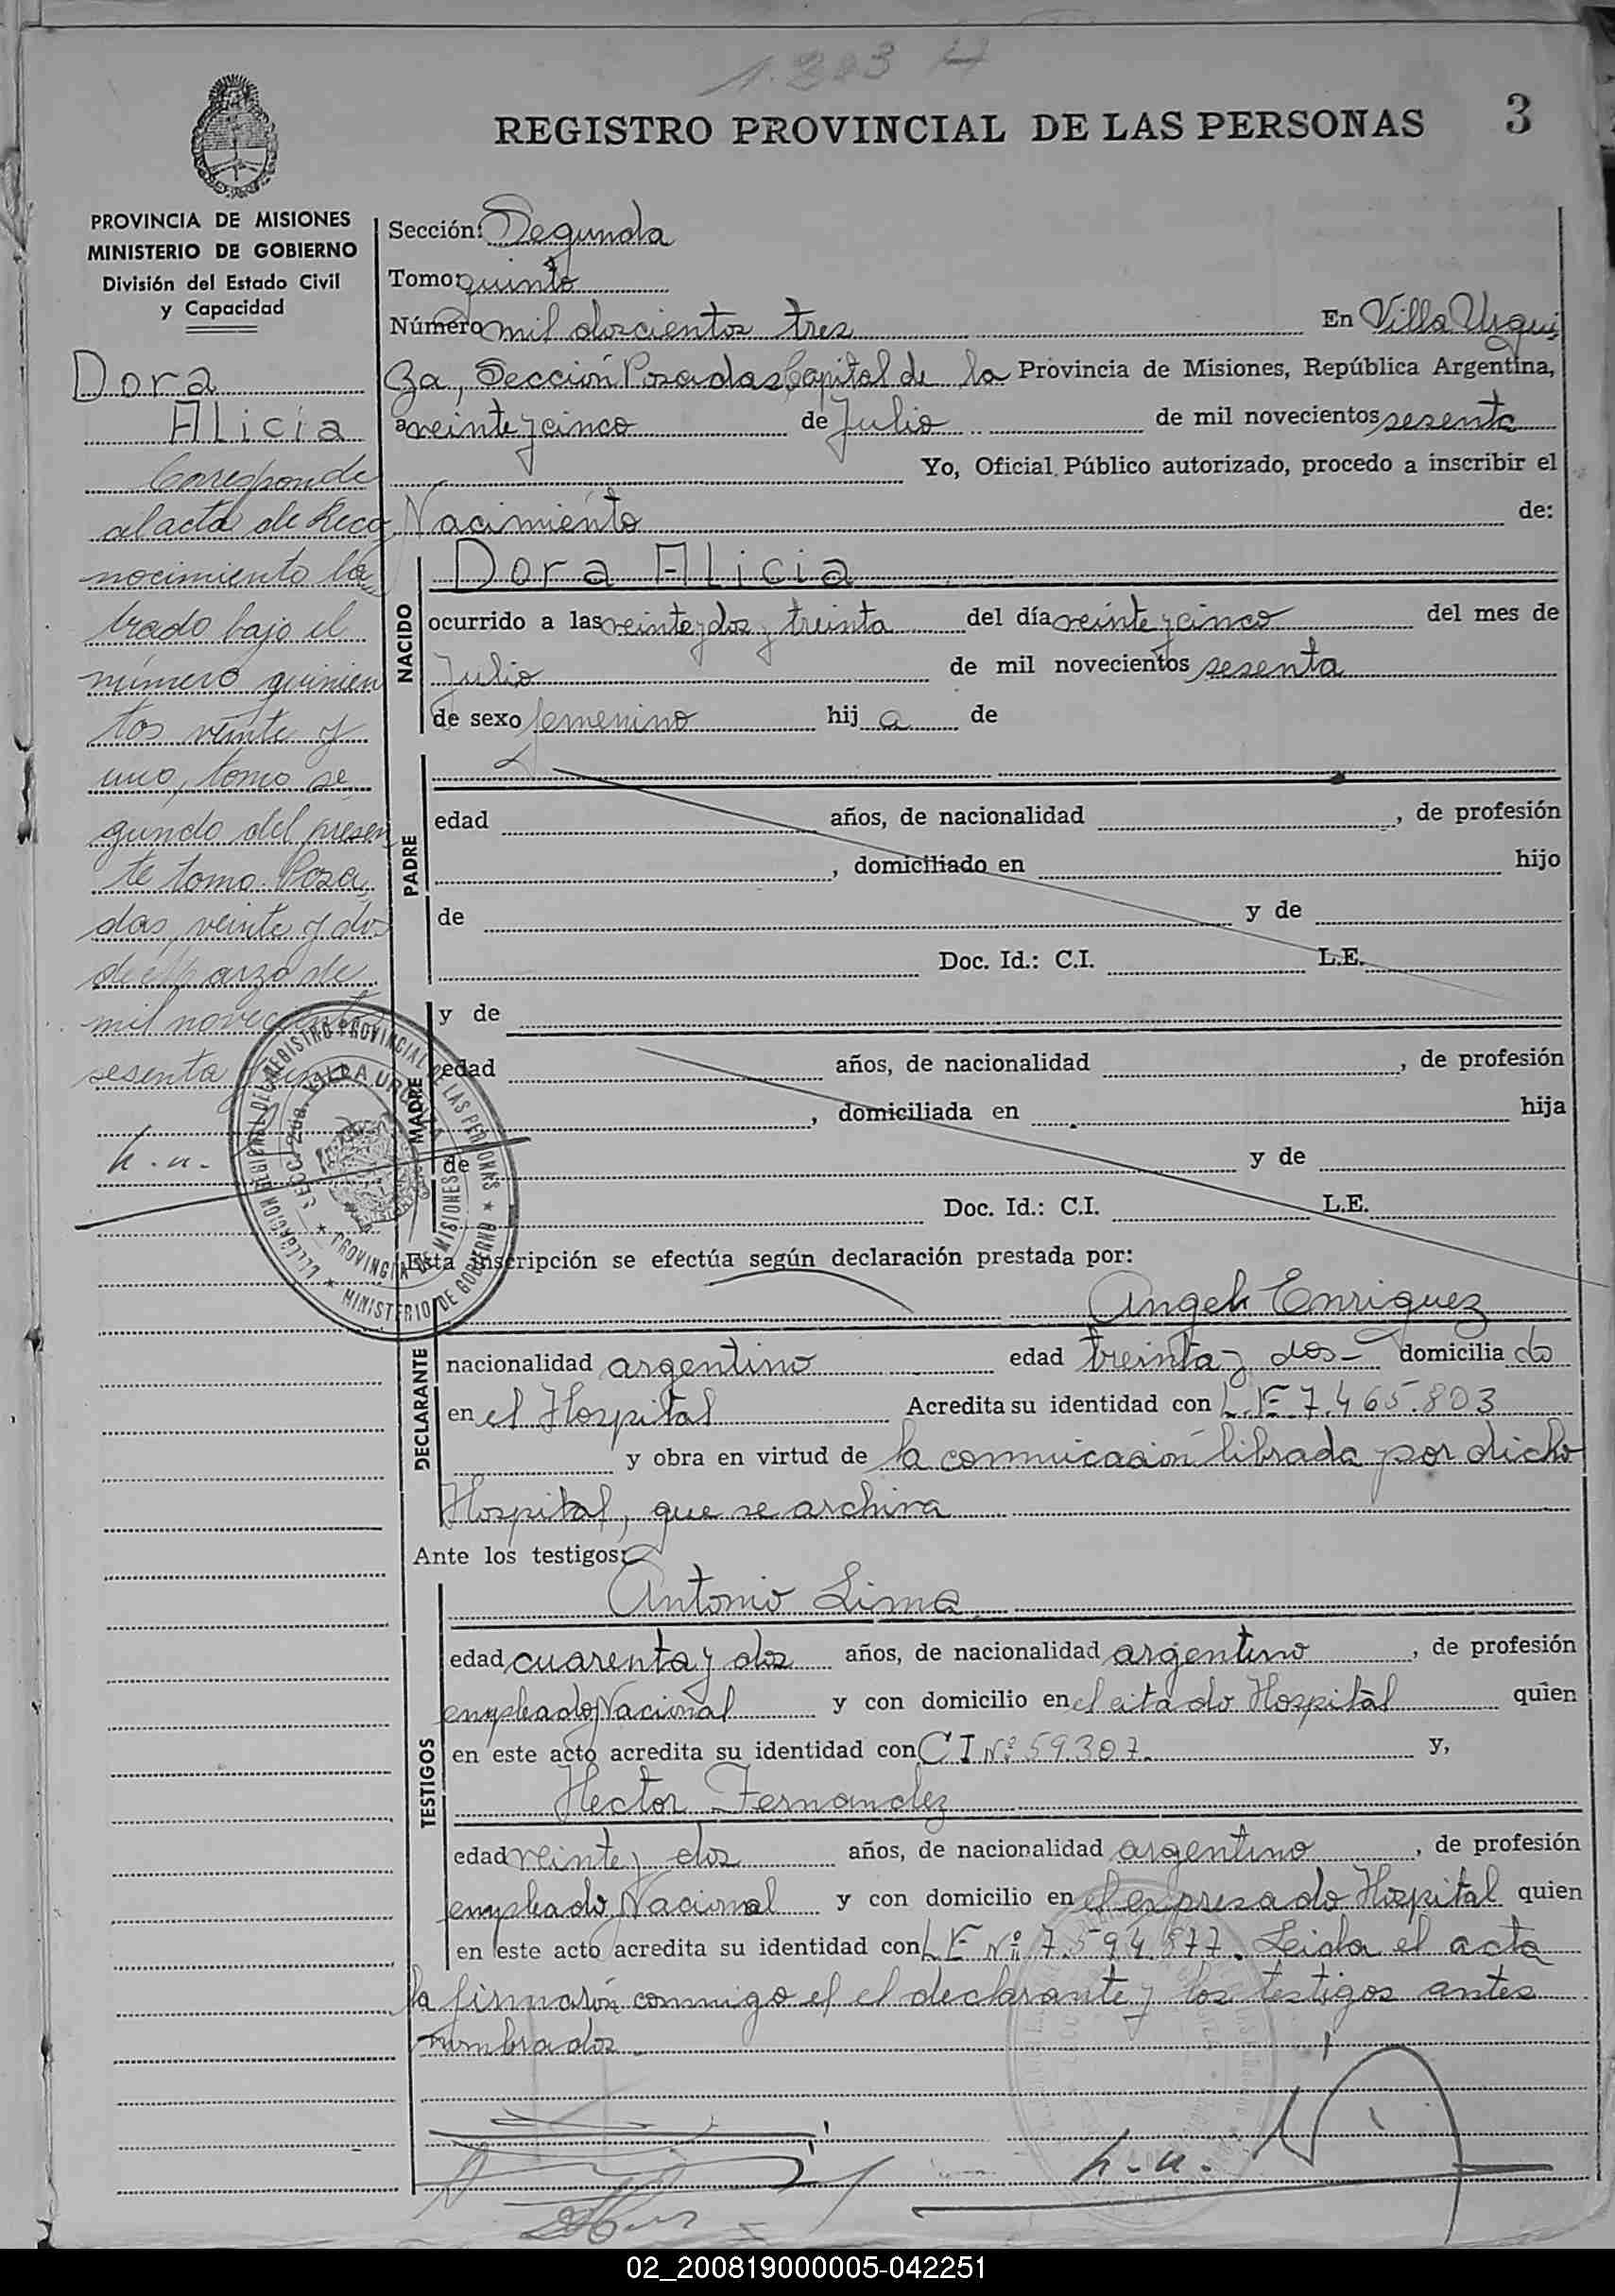 1.203 H
REGISTRO PROVINCIAL DE LAS PERSONAS 3
PROVINCIA DE MISIONES
MINISTERIO DE GOBIERNO
División del Estado Civil
y Capacidad
Dora
Alicia
Coresponde
al acta de Reco
nocimiento la
brado bajo el
número quinien
tos veinte y
uno, tomo se
gundo del presen
te tomo. Posa
das, veinte y dos
de Marzo de
mil novecientos
sesenta
h.-u.-
Sección: Segunda
Tomo: quinto
Número mil doscientos tres En Villa Urqui
za, Sección Posadas Capital de la Provincia de Misiones, República Argentina,
a veinte y cinco de Julio de mil novecientos sesenta
Yo, Oficial Público autorizado, procedo a inscribir el
Nacimiento de:
NACIDO
Dora Alicia
ocurrido a las veinte y dos y treinta del día veinte y cinco del mes de
Julio de mil novecientos sesenta
de sexo femenino hij a de
PADRE
edad años, de nacionalidad , de profesión
, domiciliado en hijo
de y de
Doc. Id.: C.I. L.E.
MADRE
y de
edad años, de nacionalidad , de profesión
, domiciliada en hija
de y de
Doc. Id.: C.I. L.E.
DELEGACION REGIONAL DEL REGISTRO PROVINCIAL DE LAS PERSONAS * MINISTERIO DE GOBIERNO *
SECC. 2da. VILLA URQUIZA * PROVINCIA DE MISIONES
Esta inscripción se efectúa según declaración prestada por:
DECLARANTE
Angel Enriquez
nacionalidad argentino edad treinta y dos- domicilia do
en el Hospital Acredita su identidad con L.E 7.465.803
y obra en virtud de la comnicación librada por dicho
Hospital, que se archiva
Ante los testigos:
TESTIGOS
Antonio Lima
edad cuarenta y dos años, de nacionalidad argentino , de profesión
empleado Nacional y con domicilio en el citado Hospital quien
en este acto acredita su identidad con C I Nº 59.307. y,
Hector Fernandez
edad veinte y dos años, de nacionalidad argentino , de profesión
empleado Nacional y con domicilio en el expresado Hospital quien
en este acto acredita su identidad con L E Nº 7.594.577. Leida el acta
la firmarón conmigo el el declarante y los testigos antes
nombrados.
h.-u.
02_200819000005-042251